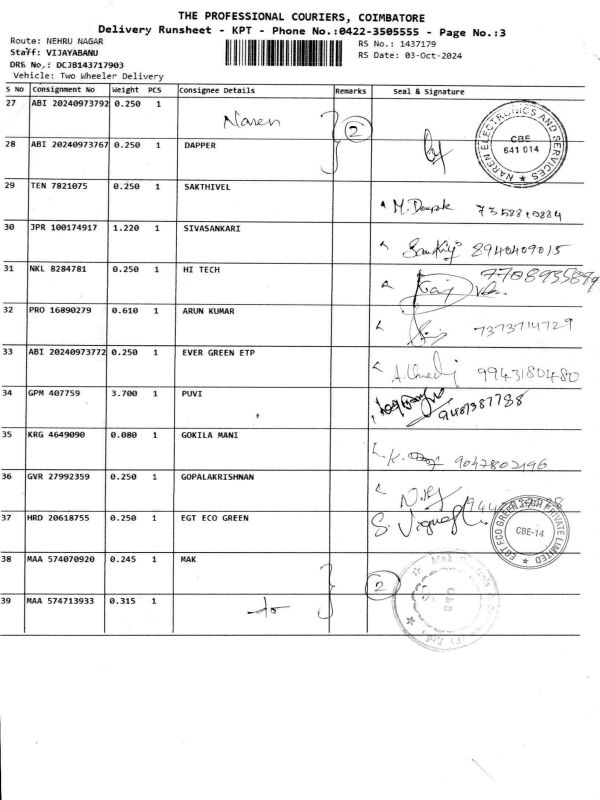 THE PROFESSIONAL COURIERS, COIMBATORE
Delivery Runsheet - KPT - Phone No.:0422-3505555 - Page No.:3
Route: NEHRU NAGAR RS No.: 1437179
Staff: VIJAYABANU RS Date: 03-Oct-2024
DRS No.: DCJB143717903
Vehicle: Two Wheeler Delivery
S No Consignment No Weight PCS Consignee Details Remarks Seal & Signature
27 ABI 20240973792 0.250 1 Naren 2
28 ABI 20240973767 0.250 1 DAPPER
NAREN ELECTRONICS AND SERVICES CBE 641 014
29 TEN 7821075 0.250 1 SAKTHIVEL
M. Deepak 7358810884
30 JPR 100174917 1.220 1 SIVASANKARI
8940409015
31 NKL 8284781 0.250 1 HI TECH
32 PRO 16890279 0.610 1 ARUN KUMAR
7373714729
33 ABI 20240973772 0.250 1 EVER GREEN ETP
9943180480
34 GPM 407759 3.700 1 PUVI
9487387788
35 KRG 4649090 0.080 1 GOKILA MANI
9047802196
36 GVR 27992359 0.250 1 GOPALAKRISHNAN
37 HRD 20618755 0.250 1 EGT ECO GREEN
EGT ECO GREEN TECH PRIVATE LIMITED CBE-14
38 MAA 574070920 0.245 1 MAK
2
39 MAA 574713933 0.315 1 do